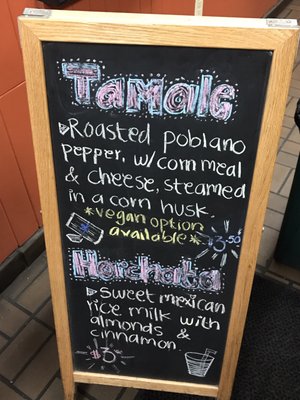 Tamale
Roasted poblano
pepper, w/ corn meal
& cheese, steamed
in a corn husk.
*vegan option
available*
$3.50
Horchata
sweet mexican
rice milk with
almonds &
cinnamon.
$3